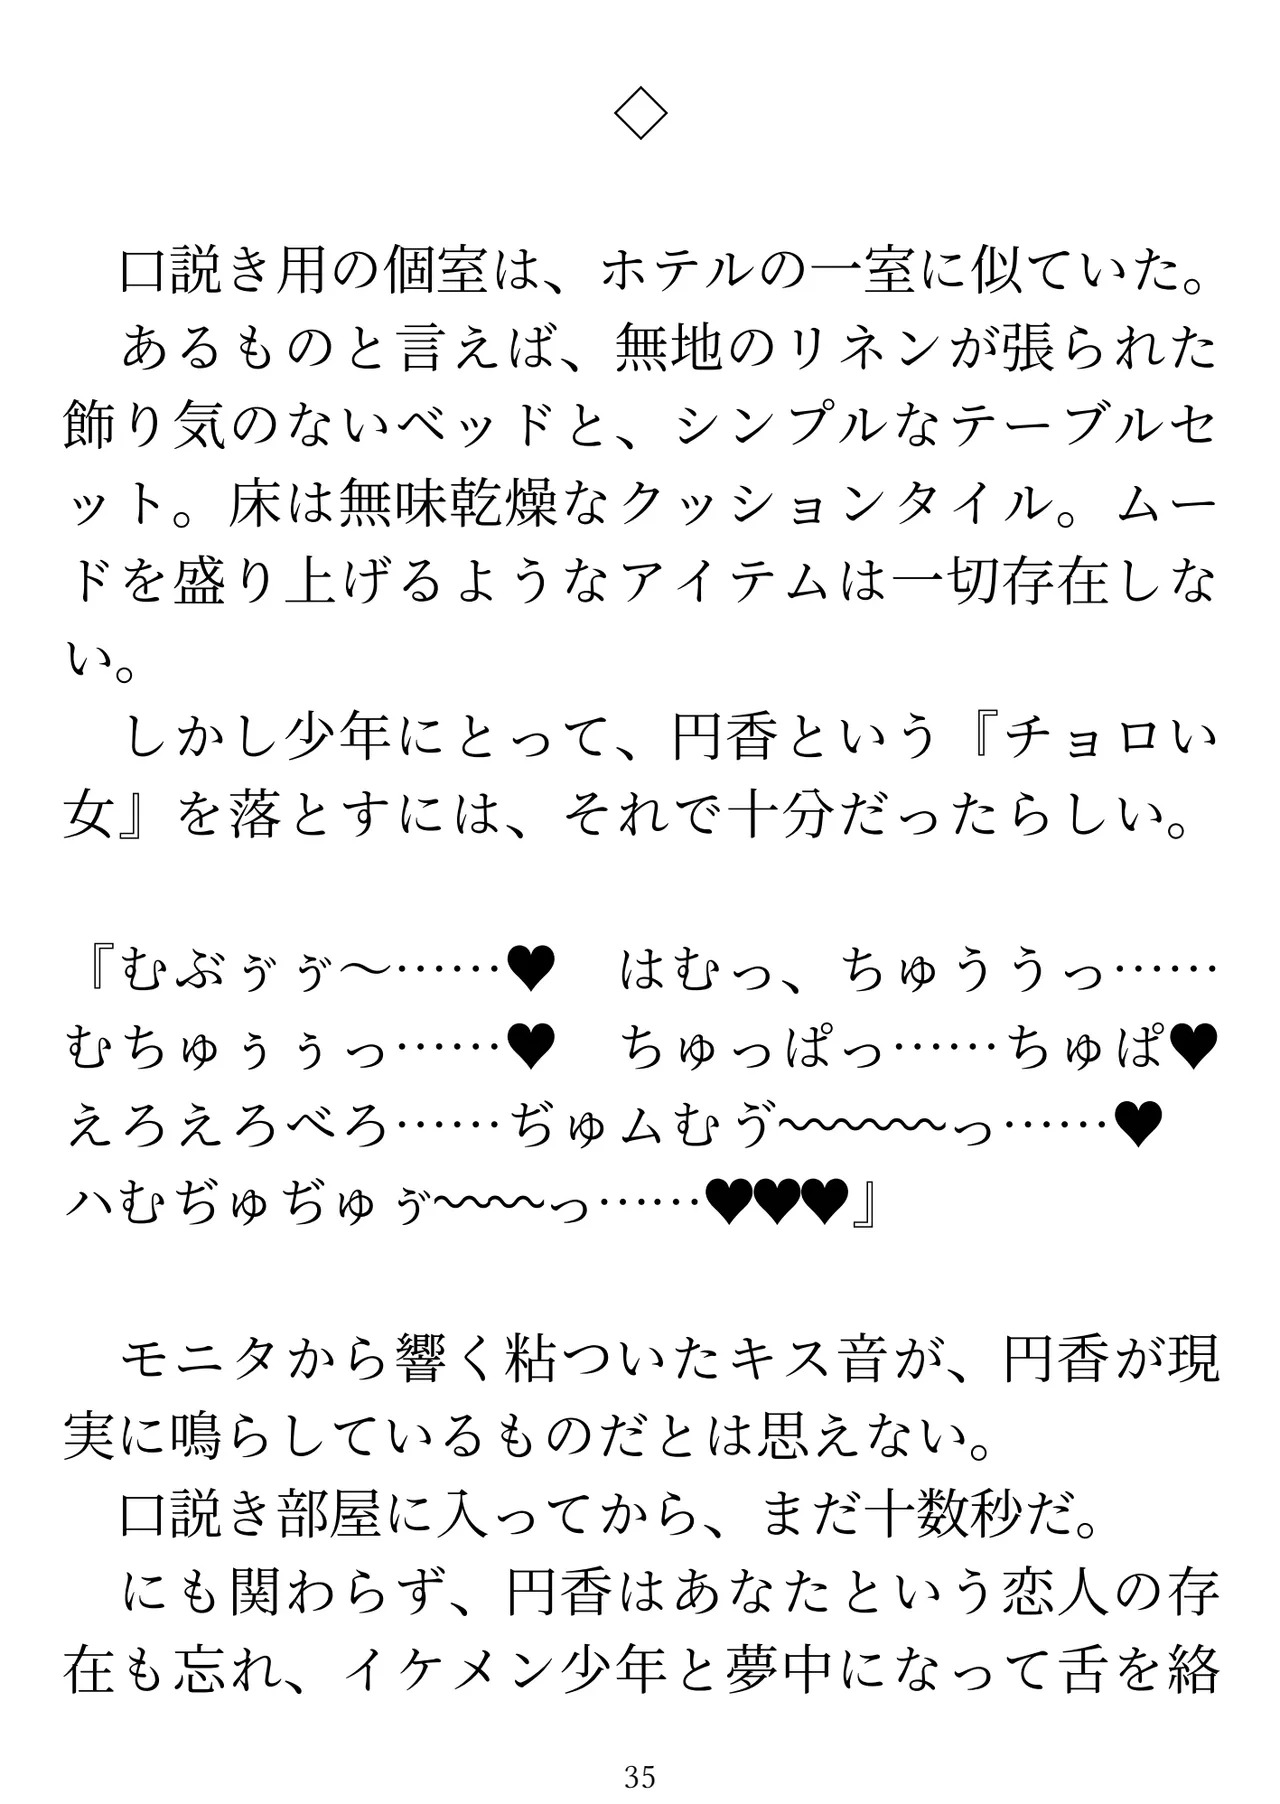 ◇
口説き用の個室は、ホテルの一室に似ていた。
あるものと言えば、無地のリネンが張られた
飾り気のないベッドと、シンプルなテーブルセ
ット。床は無味乾燥なクッションタイル。ムー
ドを盛り上げるようなアイテムは一切存在しな
い。
しかし少年にとって、円香という『チョロい
女』を落とすには、それで十分だったらしい。
『むぶぅ゛ぅ゛～……♥　はむっ、ちゅううっ……
むちゅぅぅっ……♥　ちゅっぱっ……ちゅぱ♥
えろえろべろ……ぢゅムむゔ〰〰〰っ……♥
ハむぢゅぢゅぅ゛〰〰っ……♥♥♥』
モニタから響く粘ついたキス音が、円香が現
実に鳴らしているものだとは思えない。
口説き部屋に入ってから、まだ十数秒だ。
にも関わらず、円香はあなたという恋人の存
在も忘れ、イケメン少年と夢中になって舌を絡
35